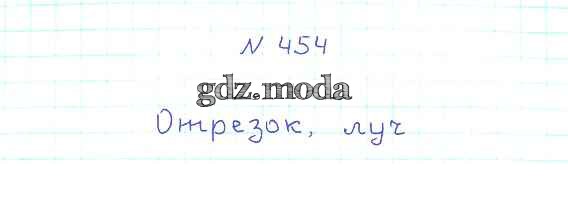 N 454
gdz.moda
Отрезок, луч